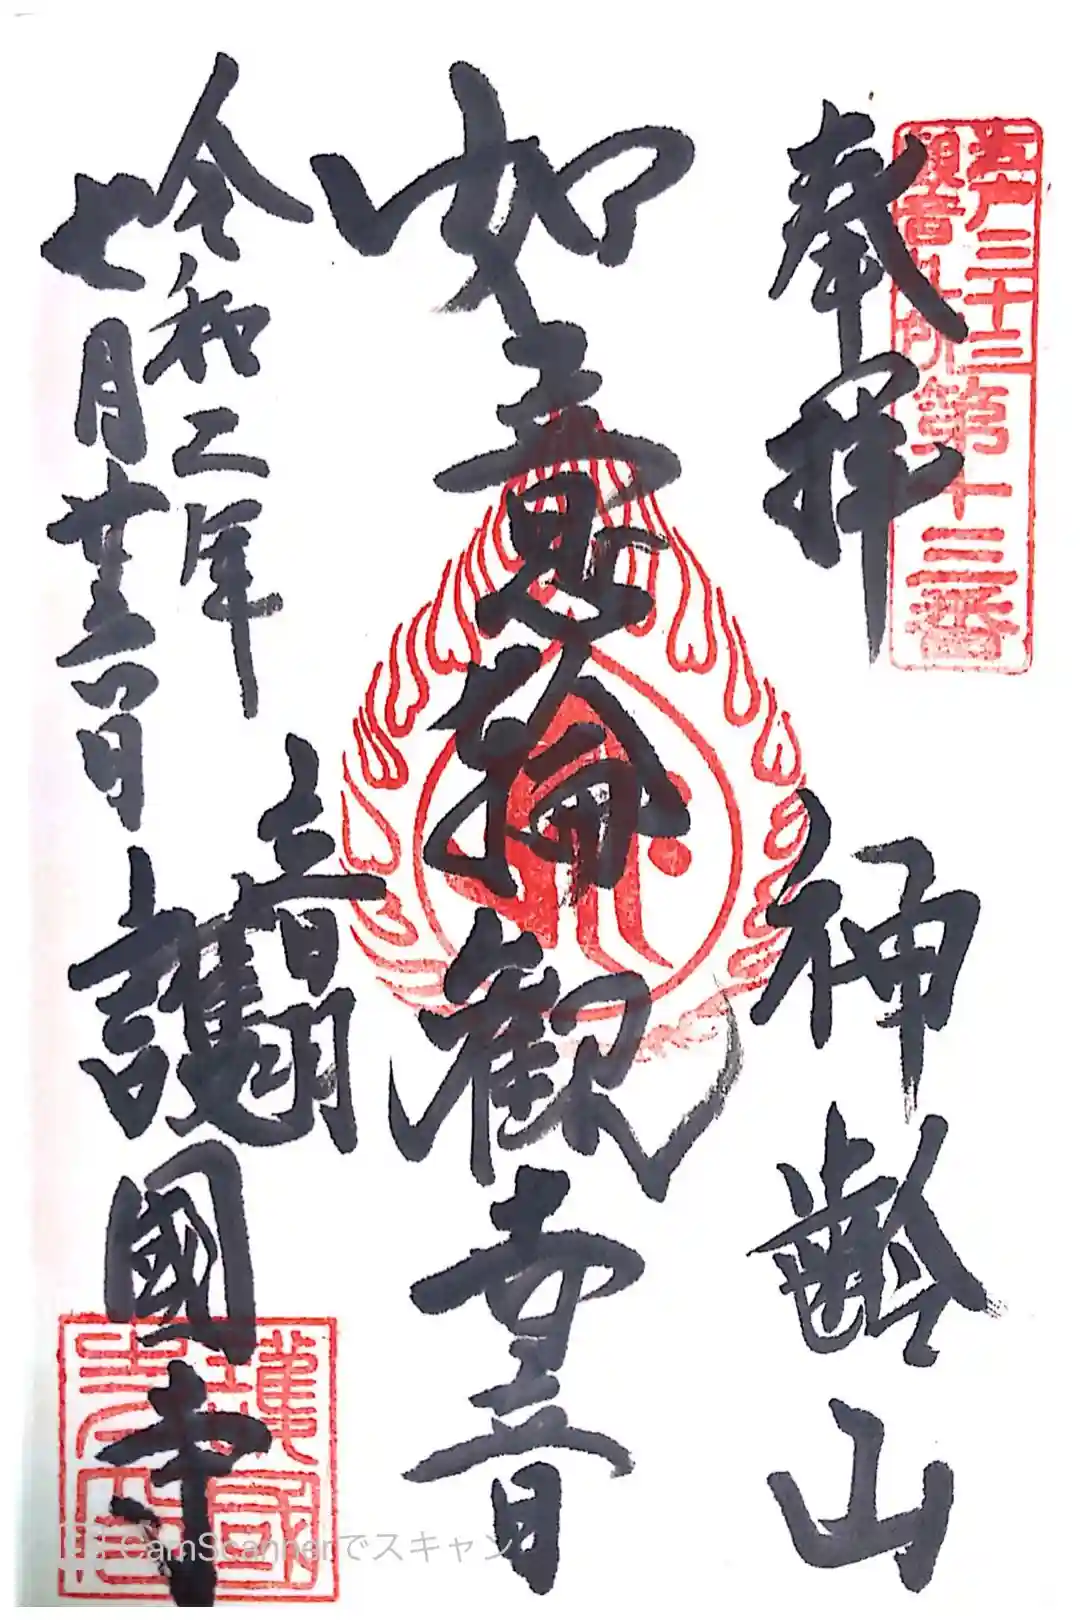 江戸三十三
観音札所
第十三番
奉拝
神齢山
如意輪観世音
令和二年
七月廿五日
音羽
護國寺
CamScannerでスキャン